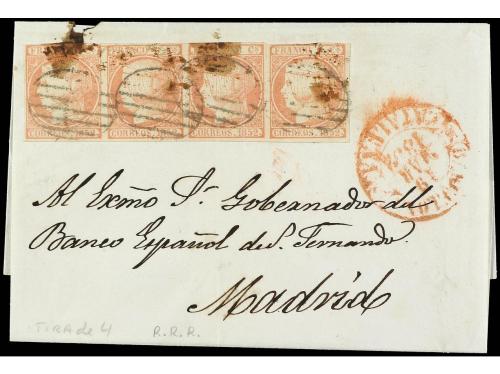 FRANCO FRANCO Cs FRANCO
CORREOS. 1852 CORREOS. 1852 CORREOS. 1852 CORREOS. 1852
Al Exmõ Sr. Gobernador del
Banco Español de S. Fernando.
Madrid
TIRA de 4 R.R.R.